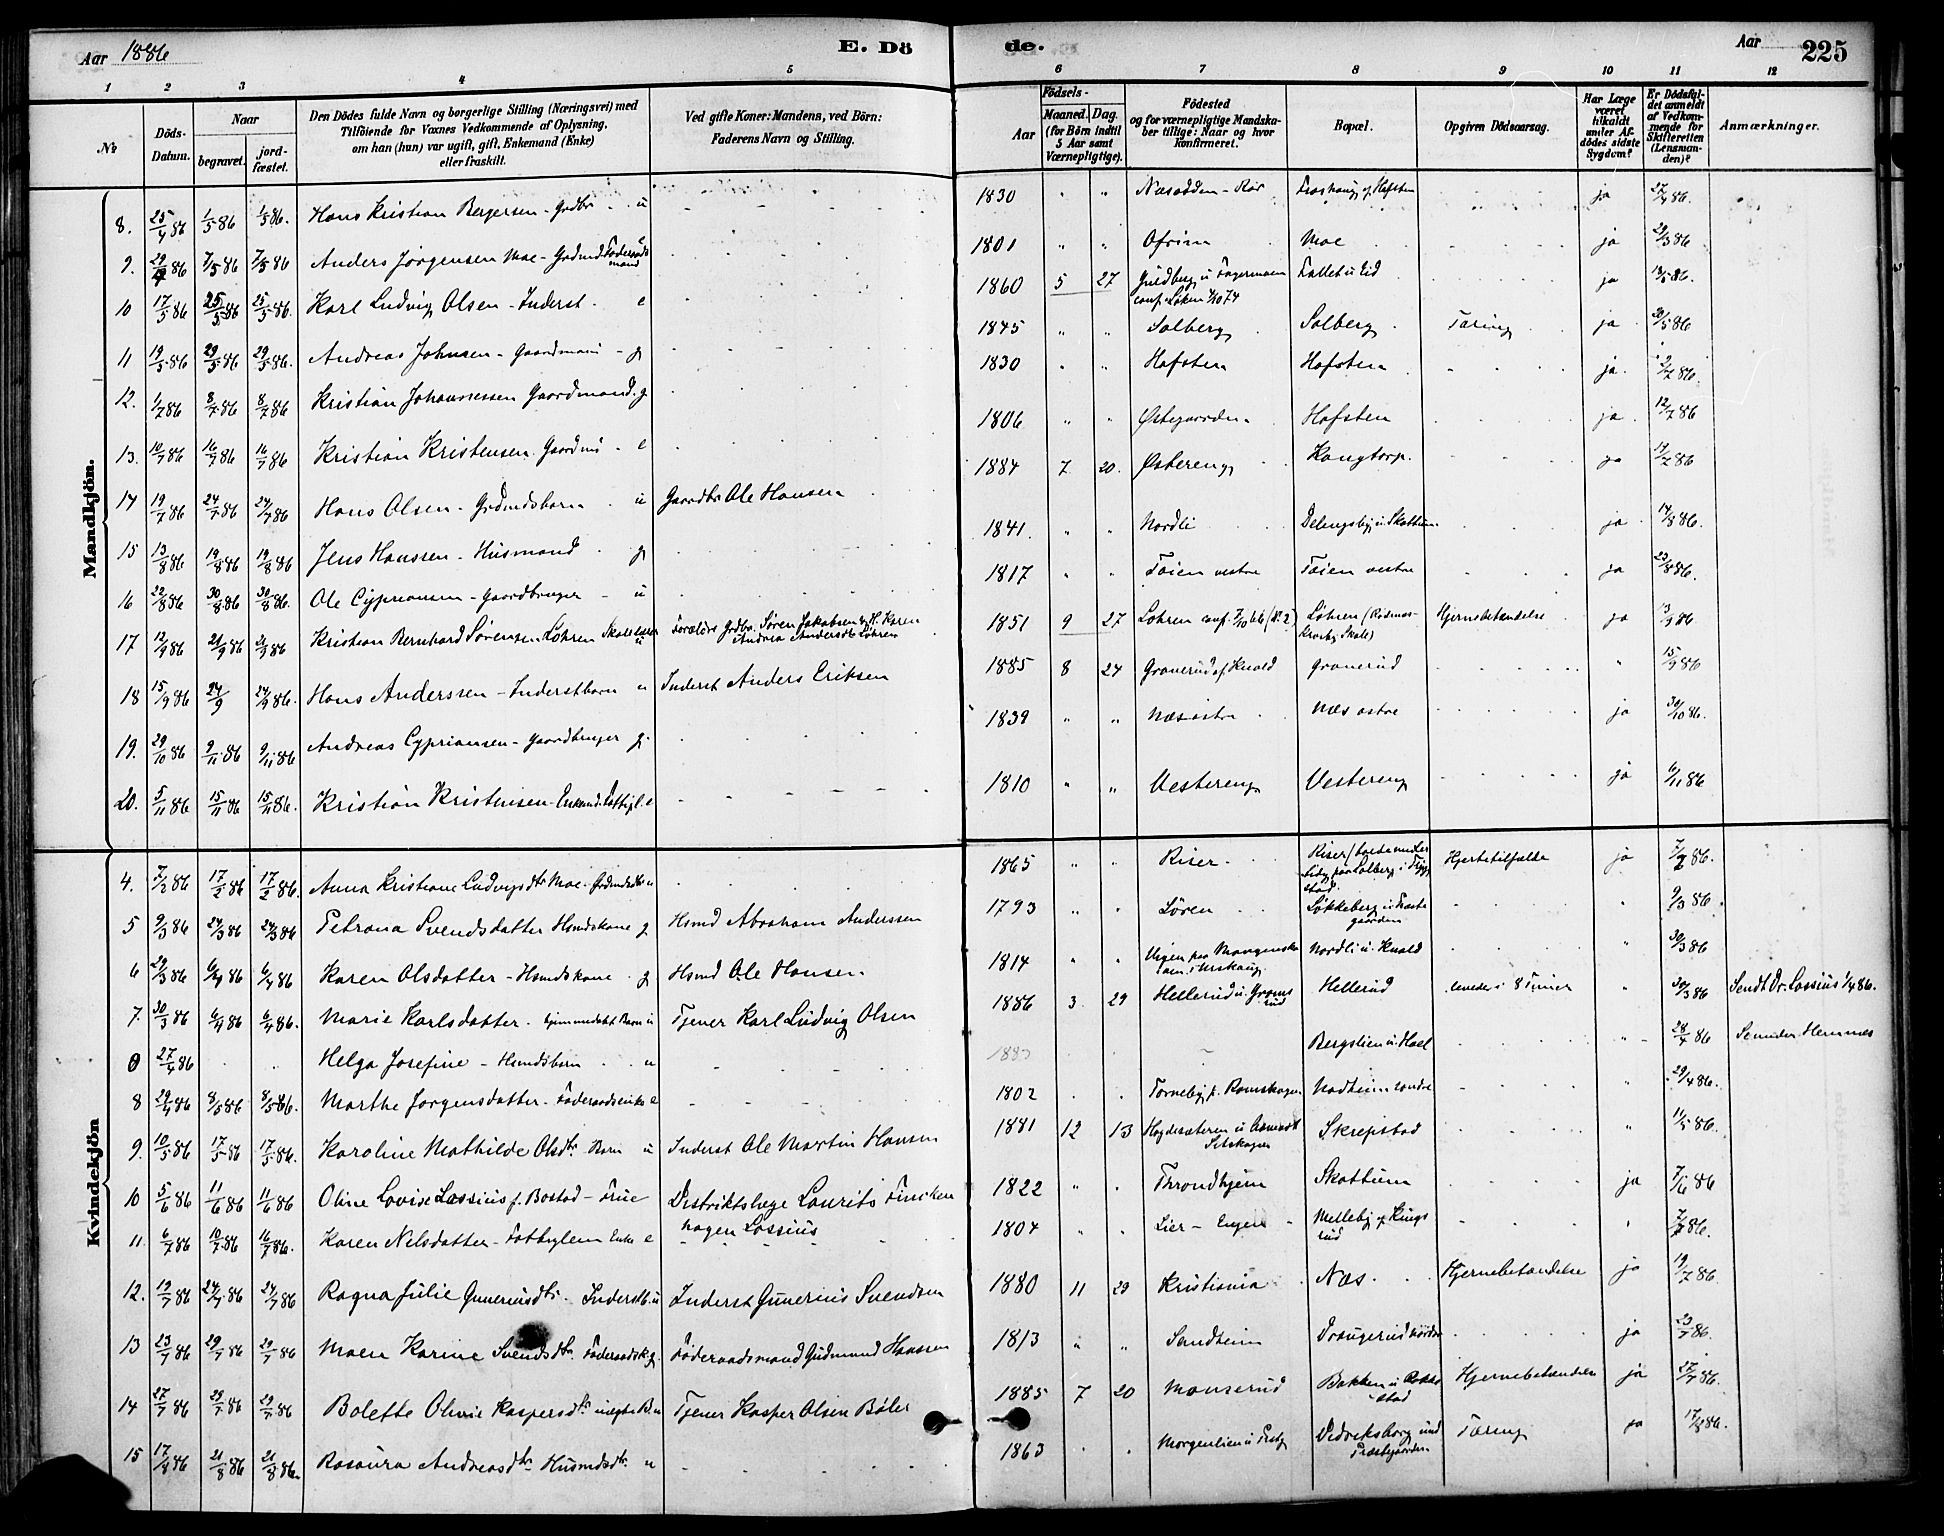 Aar 1886 E. Dö de. Aar 225
1 2 3 4 5 6 7 8 9 10 11 12
№ Döds-Datum. Naar begravet. jordfæstet. Den Dödes fulde Navn og borgerlige Stilling (Næringsvei) med Tilföiende for Voxnes Vedkommende af Oplysning, om han (hun) var ugift, gift, Enkemand (Enke) eller fraskilt. Ved gifte Koner: Mandens, ved Börn: Faderens Navn og Stilling. Födsels- Aar Maaned. Dag. (for Börn indtil 5 Aar samt Værnepligtige). Födested og for værnepligtige Mandskaber tillige: Naar og hvor konfirmeret. Bopæl. Opgiven Dödsaarsag. Har Læge været tilkaldt under Afdödes sidste Sygdom? Er Dödsfaldet anmeldt af Vedkommende for Skifteretten (Lensmanden)? Anmærkninger.
Mandkjön.
8. 25/4 86 1/5 86 1/5 86. Hans Kristian Bergersen - Grdbr u 1830 " " Næsodden - Rör Hofsten ja 27/4 86.
9. 29/4 86 7/5 86 7/5 86 Anders Jörgensen Moe - Grdmd Föderaadsmand 1801 " " Ofrim Moe ja 29/3 86
10 17/5 86 25/5 86 25/5 86. Karl Ludvig Olsen - Inderst. e 1860 5 27 Guldberg u Fagermoen conf. Löken 4/10 74 Fallet u Eid ja 18/5 86.
11 19/5 86 29/5 86 29/5 86. Andreas Johnsen - Gaardmand - g 1845 " " Solberg Solberg Tæring ja 20/5 86
12. 1/7 86 8/7 86 8/7 86 Kristian Johannessen Gaardmand. g 1830 " " Hofsten Hofsten ja. 2/7 86.
13. 10/7 86 16/7 86 16/7 86 Kristian Kristensen Gaardmd - e 1806 " " Østegaarden Hofsten ja 12/7 86
14 19/7 86 24/7 86 24/7 86 Hans Olsen - Grdmdsbarn u Gaardbr Ole Hansen 1884 7 20. Østereng Kongtorp. ja 19/7 86
15 13/8 86 19/8 86 19/8 86 Jens Hanssen - Husmand g 1841. " " Nordli Delingsby u Skattum ja 14/8 86.
16 22/8 86 30/8 86 30/8 86. Ole Cypriansen - Gaardbruger - u 1817 " " Toien vestre Toien vestre ja 23/8 86.
17 12/9 86 21/9 86 21/9 86 Kristian Bernhard Sörensen Löhren Skolelærer u Forældre Grdbr. Sören Jakobsen og H. Karen Andrea Andersdtr Löhren 1851 9 27 Lohren conf. 7/10 66 (No 2) Löhren (Rödenes-Kroeby Skole) Hjernebetændelse ja 13/9 86
18 15/9 86 24/9 24/9 86. Hans Anderssen - Inderstbarn u Inderst Anders Eriksen 1885 8 24 Granerud af Kvald Granerud " 15/9 86
19. 29/10 86 9/11 86 9/11 86. Andreas Cypriansen - Gaardbruger g. 1839 " " Næs østre Næs østre ja 30/10 86.
20. 5/11 86 15/11 86 15/11 86. Kristian Kristensen - Enkemd. Fattigl. e 1810 " " Vestereng Vestereng ja 6/11 86
Kvindekjön
4. 7/2 86 17/2 86 17/2 86. Anna Kristiane Ludvigsdtr Moe - Grdmdsdtr u 1865 " " Riser. Riser Hjertetilfælde ja 7/2 86.
5 9/3 86 24/3 86 24/3 86 Petrona Svendsdatter Hsmdskone g Hsmd Abraham Anderssen 1793 " " Lören Lökkeberg u Præstegaarden " 9/3 86.
6 29/3 86 6/4 86 6/4 86 Karen Olsdatter - Hsmdskone g Hsmd Ole Hansen 1814 " " Nordli u. Kvald " 30/3 86
7. 30/3 86 6/4 86 6/4 86. Marie Karlsdatter - hjemmedöbt Barn u Tjener Karl Ludvig Olsen 1886 3 29 Hellerud u. Gromsrud Hellerud levede i 8 Timer " 30/3 86 Sendt Dr. Lossius 1/4 86.
0 27/4 86 Helga Josefine - Hsmdsbarn u 1883 Bergslien u Hael " 28/4 86 Hemnes
8 29/4 86 8/5 86 8/5 86. Marthe Jorgensdatter - Föderaadsenke e 1802 Torneby p. Romskogen Nadheim söndre " 29/4 86.
9. 10/5 86 17/5 86 17/5 86. Karoline Mathilde Olsdtr Barn u Inderst Ole Martin Hansen 1881 12 13 Setskogen Skrepstad " 11/5 86.
10 5/6 86 11/6 86 11/6 86 Oline Lovise Lossius f. Bostad - Frue Distriktslæge Laurits Finckenhagen Lossius 1822 " " Throndhjem Skattum ja 7/6 86
11. 6/7 86 10/7 86 10/7 86. Karen Nilsdatter - Fattiglem Enke e 1804 " " Lier - Engen Melleby p Kingsrud " 7/7 86.
12. 19/7 86 24/7 86 24/7 86 Ragna Julie Guneriusdtr. Inderstb. u Inderst Gunerius Svendsen 1880 11 29 Kristiania Næs. Hjernebetændelse ja 19/7 86.
13 23/7 86 29/7 86 29/7 86 Maren Karine Svendsdtr. Föderaadsk. g. Föderaadsmand Gudmund Hansen 1813 " " Sandheim Draugerud nordre ja 23/7 86.
14 27/7 86 29/7 86 29/7 86 Bolette Olivie Kaspersdtr uægte B. u Tjener Kasper Olsen Böler 1885 7 20 Monserud Bakken u Hjernebetændelse ja 27/7 86.
15 17/8 86 21/8 86 21/8 86. Rosaura Andreasdtr. Husmdsdtr. u 1863 Morgenlien Dedreksborg und Præstgaarden Tæring ja 17/8 86.